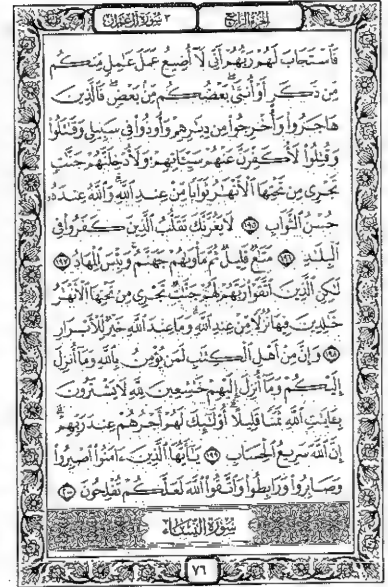 الجزء الرابع
٣ سورة آل عمران
فَٱسْتَجَابَ لَهُمْ رَبُّهُمْ أَنِّي لَآ أُضِيعُ عَمَلَ عَٰمِلٍ مِّنكُم
مِّن ذَكَرٍ أَوْ أُنثَىٰ ۖ بَعْضُكُم مِّنۢ بَعْضٍ ۖ فَٱلَّذِينَ
هَاجَرُوا۟ وَأُخْرِجُوا۟ مِن دِيَٰرِهِمْ وَأُوذُوا۟ فِي سَبِيلِي وَقَٰتَلُوا۟
وَقُتِلُوا۟ لَأُكَفِّرَنَّ عَنْهُمْ سَيِّـَٔاتِهِمْ وَلَأُدْخِلَنَّهُمْ جَنَّٰتٍ
تَجْرِي مِن تَحْتِهَا ٱلْأَنْهَٰرُ ثَوَابًا مِّنْ عِندِ ٱللَّهِ ۗ وَٱللَّهُ عِندَهُۥ
حُسْنُ ٱلثَّوَابِ ١٩٥ لَا يَغُرَّنَّكَ تَقَلُّبُ ٱلَّذِينَ كَفَرُوا۟ فِي
ٱلْبِلَٰدِ ١٩٦ مَتَٰعٌ قَلِيلٌ ثُمَّ مَأْوَىٰهُمْ جَهَنَّمُ ۚ وَبِئْسَ ٱلْمِهَادُ ١٩٧
لَٰكِنِ ٱلَّذِينَ ٱتَّقَوْا۟ رَبَّهُمْ لَهُمْ جَنَّٰتٌ تَجْرِي مِن تَحْتِهَا ٱلْأَنْهَٰرُ
خَٰلِدِينَ فِيهَا نُزُلًا مِّنْ عِندِ ٱللَّهِ ۗ وَمَا عِندَ ٱللَّهِ خَيْرٌ لِّلْأَبْرَارِ
١٩٨ وَإِنَّ مِنْ أَهْلِ ٱلْكِتَٰبِ لَمَن يُؤْمِنُ بِٱللَّهِ وَمَآ أُنزِلَ
إِلَيْكُمْ وَمَآ أُنزِلَ إِلَيْهِمْ خَٰشِعِينَ لِلَّهِ لَا يَشْتَرُونَ
بِـَٔايَٰتِ ٱللَّهِ ثَمَنًا قَلِيلًا ۗ أُو۟لَٰٓئِكَ لَهُمْ أَجْرُهُمْ عِندَ رَبِّهِمْ ۗ
إِنَّ ٱللَّهَ سَرِيعُ ٱلْحِسَابِ ١٩٩ يَٰٓأَيُّهَا ٱلَّذِينَ ءَامَنُوا۟ ٱصْبِرُوا۟
وَصَابِرُوا۟ وَرَابِطُوا۟ وَٱتَّقُوا۟ ٱللَّهَ لَعَلَّكُمْ تُفْلِحُونَ ٢٠٠
سورة النساء
٧٦